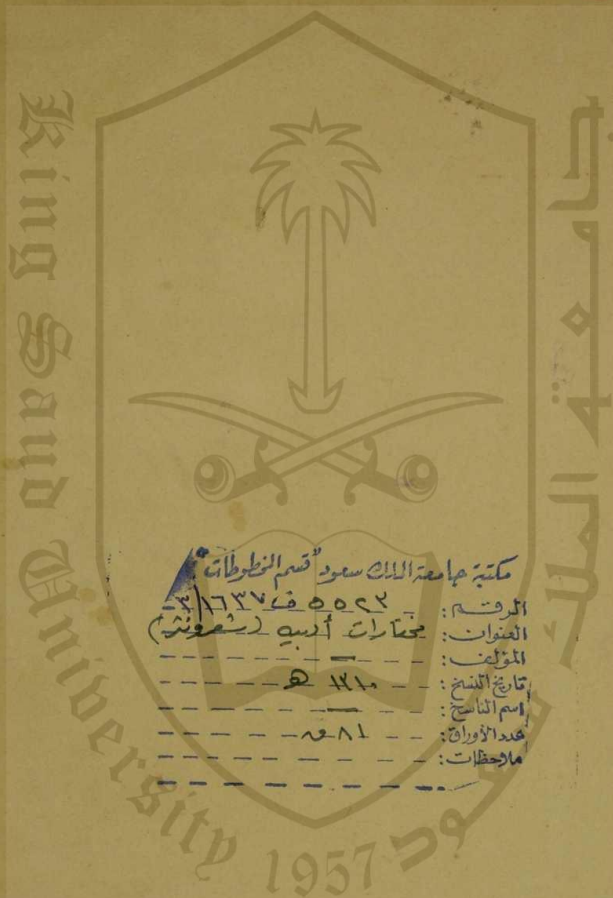 King Saud University 1957
جامعة الملك سعود
مكتبة جامعة الملك سعود "قسم المخطوطات"
الرقم: ٥٥٢٣ ف ١٦٣٧/٣
العنوان: مختارات أدبيه (شعر ونثر)
المؤلف: —
تاريخ النسخ: ١٣١٠ هـ
اسم الناسخ: —
عدد الأوراق: ٨١ ق
ملاحظات: